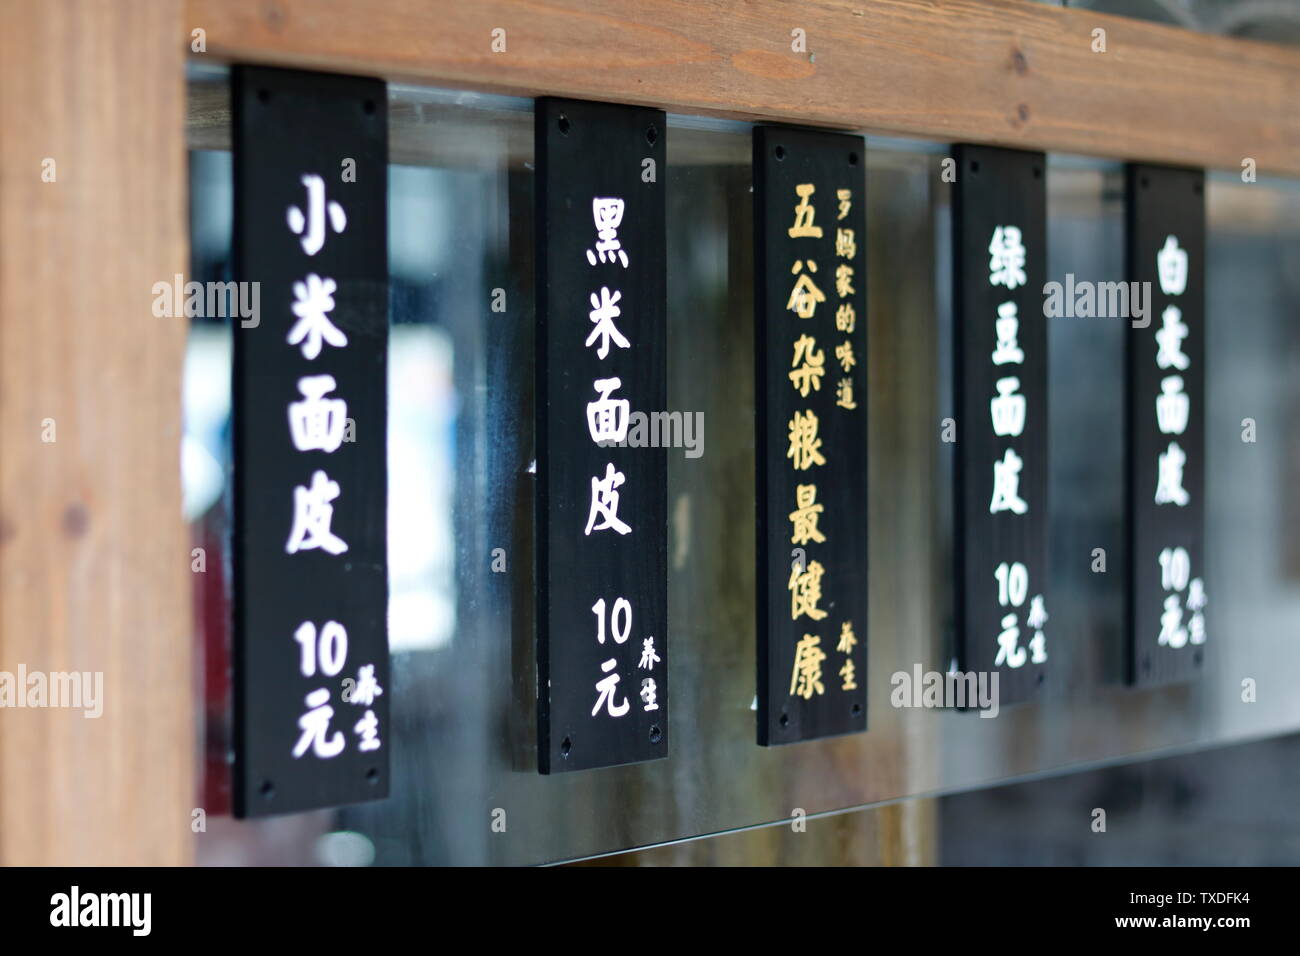 小米面皮 10元
养生
黑米面皮 10元
养生
罗妈家的味道
五谷杂粮最健康
养生
绿豆面皮 10元
养生
白麦面皮 10元
养生
alamy
alamy
Image ID: TXDFK4
www.alamy.com